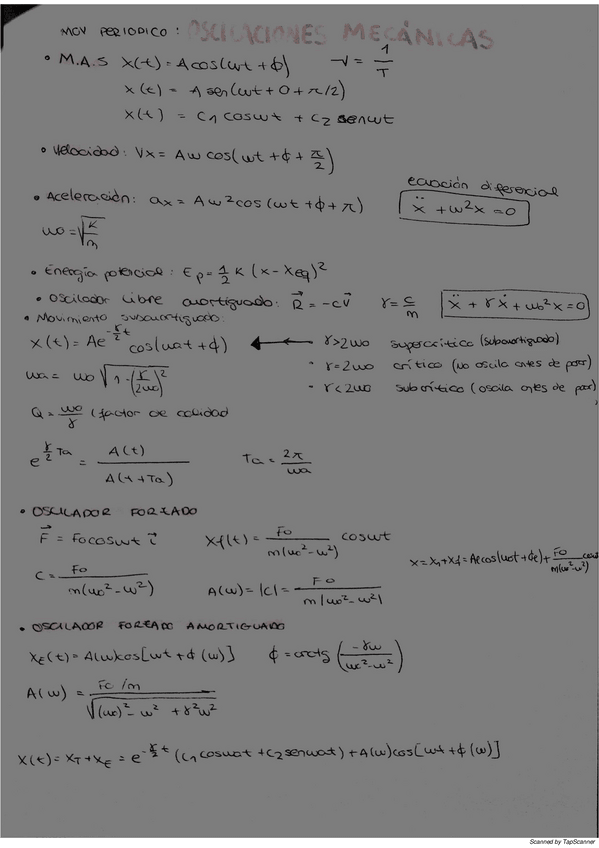 MOV PERIODICO: OSCILACIONES MECÁNICAS
• M.A.S X(t) = A cos(ωt + ϕ) ν = 1/T
X(t) = A sen(ωt + 0 + π/2)
X(t) = C1 cosωt + C2 senωt
• Velocidad: Vx = Aω cos(ωt + ϕ + π/2)
• Aceleración: ax = Aω² cos(ωt + ϕ + π)
ecuación diferencial
ẍ + ω²x = 0
ωo = √(K/m)
• Energía potencial: Ep = 1/2 K (x - Xeq)²
• Oscilador libre amortiguado: R⃗ = -cv⃗ γ = c/m ẍ + γẋ + ωo²x = 0
• Movimiento subamortiguado:
X(t) = Ae^(-γ/2 t) cos(ωat + ϕ) ← γ>2ωo supercrítico (subamortiguado)
ωa = ωo √(1 - (γ/2ωo)²) • γ=2ωo crítico (no oscila antes de parar)
• γ<2ωo subcrítico (oscila antes de parar)
Q = ωo/γ (factor de calidad
e^(γ/2 Ta) = A(t)/A(t+Ta) Ta = 2π/ωa
• OSCILADOR FORZADO
F⃗ = Fo cosωt i⃗ Xf(t) = Fo/m(ωo² - ω²) cosωt
x = X1 + Xf = Ae cos(ωot + ϕe) + Fo/m(ωo²-ω²) cosω
C = Fo/m(ωo² - ω²) A(ω) = |C| = Fo/m|ωo² - ω²|
• OSCILADOR FORZADO AMORTIGUADO
XE(t) = A(ω)cos[ωt + ϕ(ω)] ϕ = arctg (-γω/ωo²-ω²)
A(ω) = Fo/m / √((ωo)² - ω² + γ²ω²
X(t) = XT + XE = e^(-γ/2 t) (C1 cosωat + C2 senωat) + A(ω)cos[ωt + ϕ(ω)]
Scanned by TapScanner